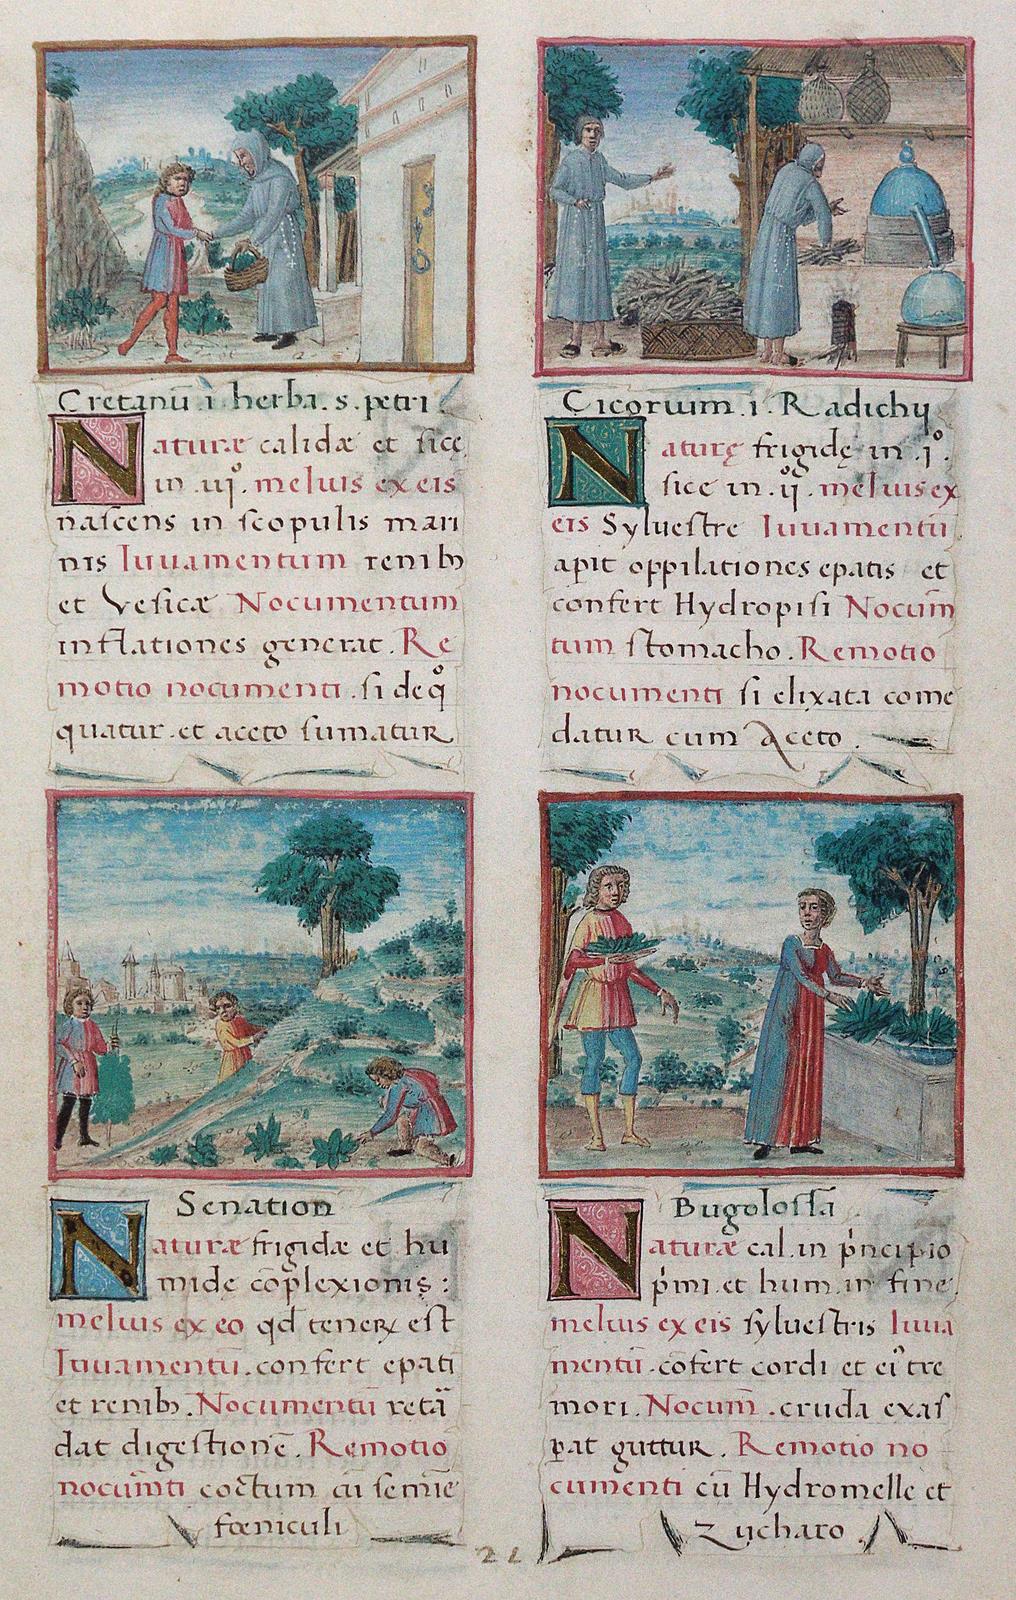 Cretanū i herba. s. petri.
Naturæ calidæ et sicę
in .iij°. melius ex eis
nascens in scopulis mari
nis Iuuamentum renibꝫ
et Vesicæ Nocumentum
inflationes generat. Re
motio nocumenti .si deq°
quatur et aceto sumatur
Cicorium .i. Radichij
Naturę frigidę in .j°.
sice in .ij°. melius ex
eis Syluestre Iuuamentū
apit oppilationes epatis et
confert Hydropisi Nocum̄
tum stomacho. Remotio
nocumenti si elixata come
datur cum Aceto.
Senation
Naturæ frigidæ et hu
midę cōplexionis:
melius ex eo qd tenerꝝ est
Iuuamentū. confert epati
et renibꝫ. Nocumentū retā
dat digestionē. Remotio
nocum̄ti coctum cū semīe
fœniculi
Bugolossa
Naturæ cal. in pncipio
pmi. et hum. in fine.
melius ex eis syluestris Iuua
mentū. cōfert cordi et ei tre
mori. Nocum̄. cruda exas
ꝑat guttur. Remotio no
cumenti cū Hydromelle et
Zucharo.
21